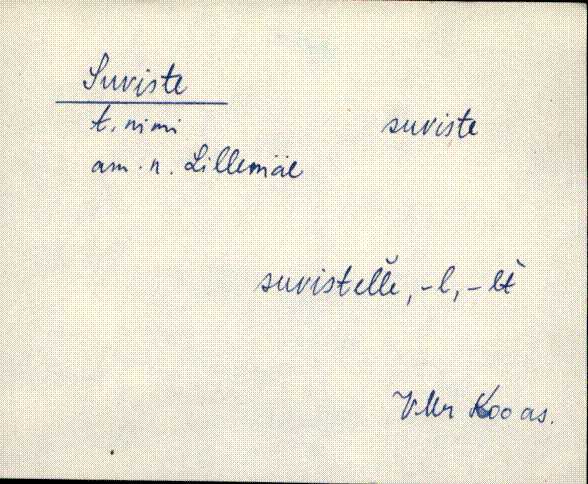 Suviste
t. nimi suviste
am. n. Lillemäe
suvistelle, -l, -lt
VMr Koo as.